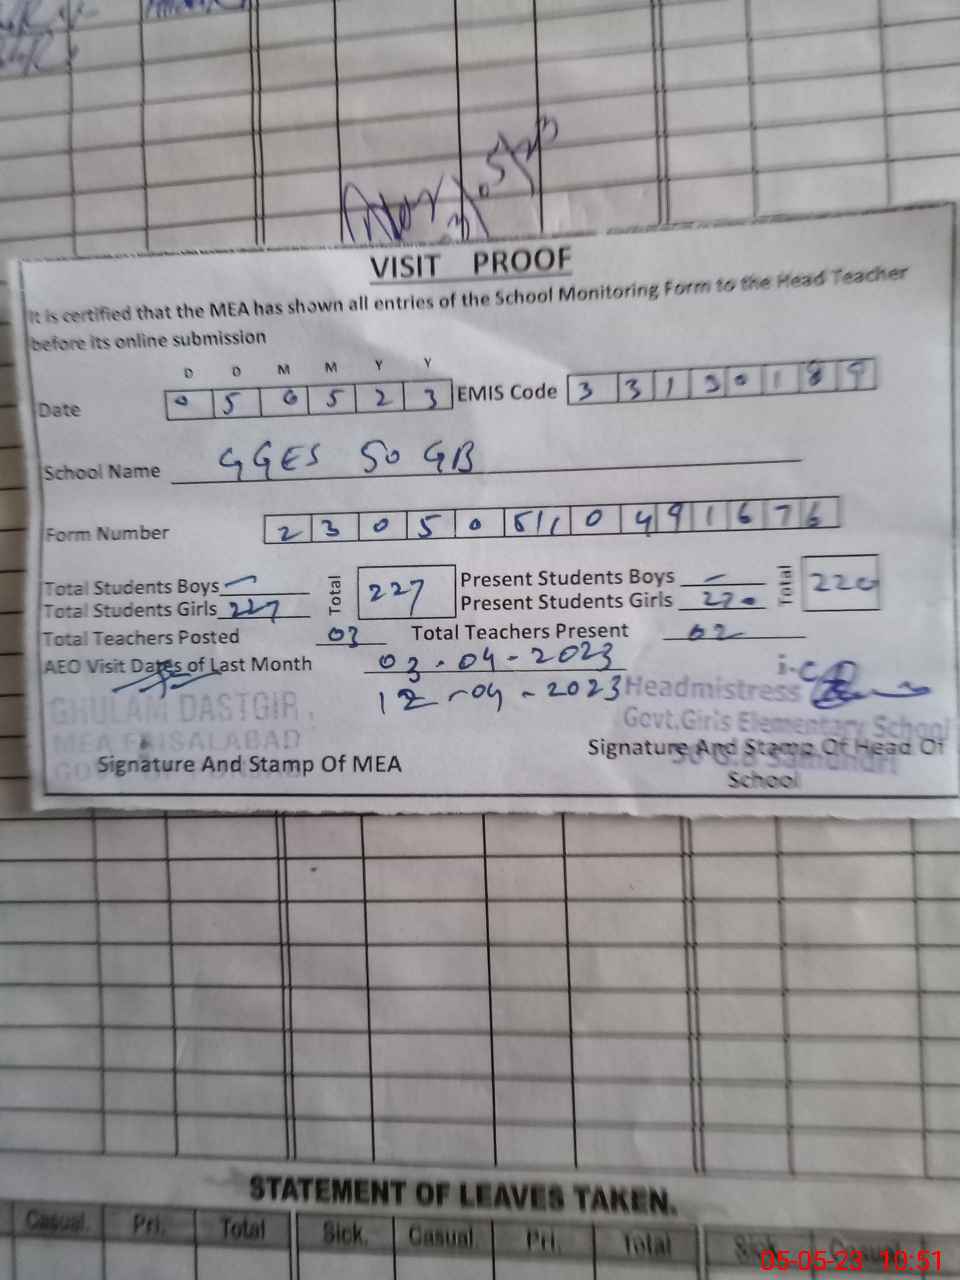 VISIT PROOF
It is certified that the MEA has shown all entries of the School Monitoring Form to the Head Teacher
before its online submission
D D M M Y Y
Date 0 5 0 5 2 3 EMIS Code 3 3 1 3 0 1 8 9
School Name GGES 50 GB
Form Number 2 3 0 5 0 5 1 1 0 4 9 1 6 7 6
Total Students Boys — Total 227 Present Students Boys — Total 220
Total Students Girls 227 Present Students Girls 220
Total Teachers Posted 03 Total Teachers Present 02
AEO Visit Dates of Last Month 03-04-2023
12-04-2023
i-c
Headmistress
GHULAM DASTGIR
Govt.Girls Elementary School
MEA FAISALABAD
50 G.B Samundri
Signature And Stamp Of MEA
Signature And Stamp Of Head Of
School
STATEMENT OF LEAVES TAKEN.
Casual. Pri. Total Sick. Casual. Pri. Total Sick. Casual
05-05-23 10:51